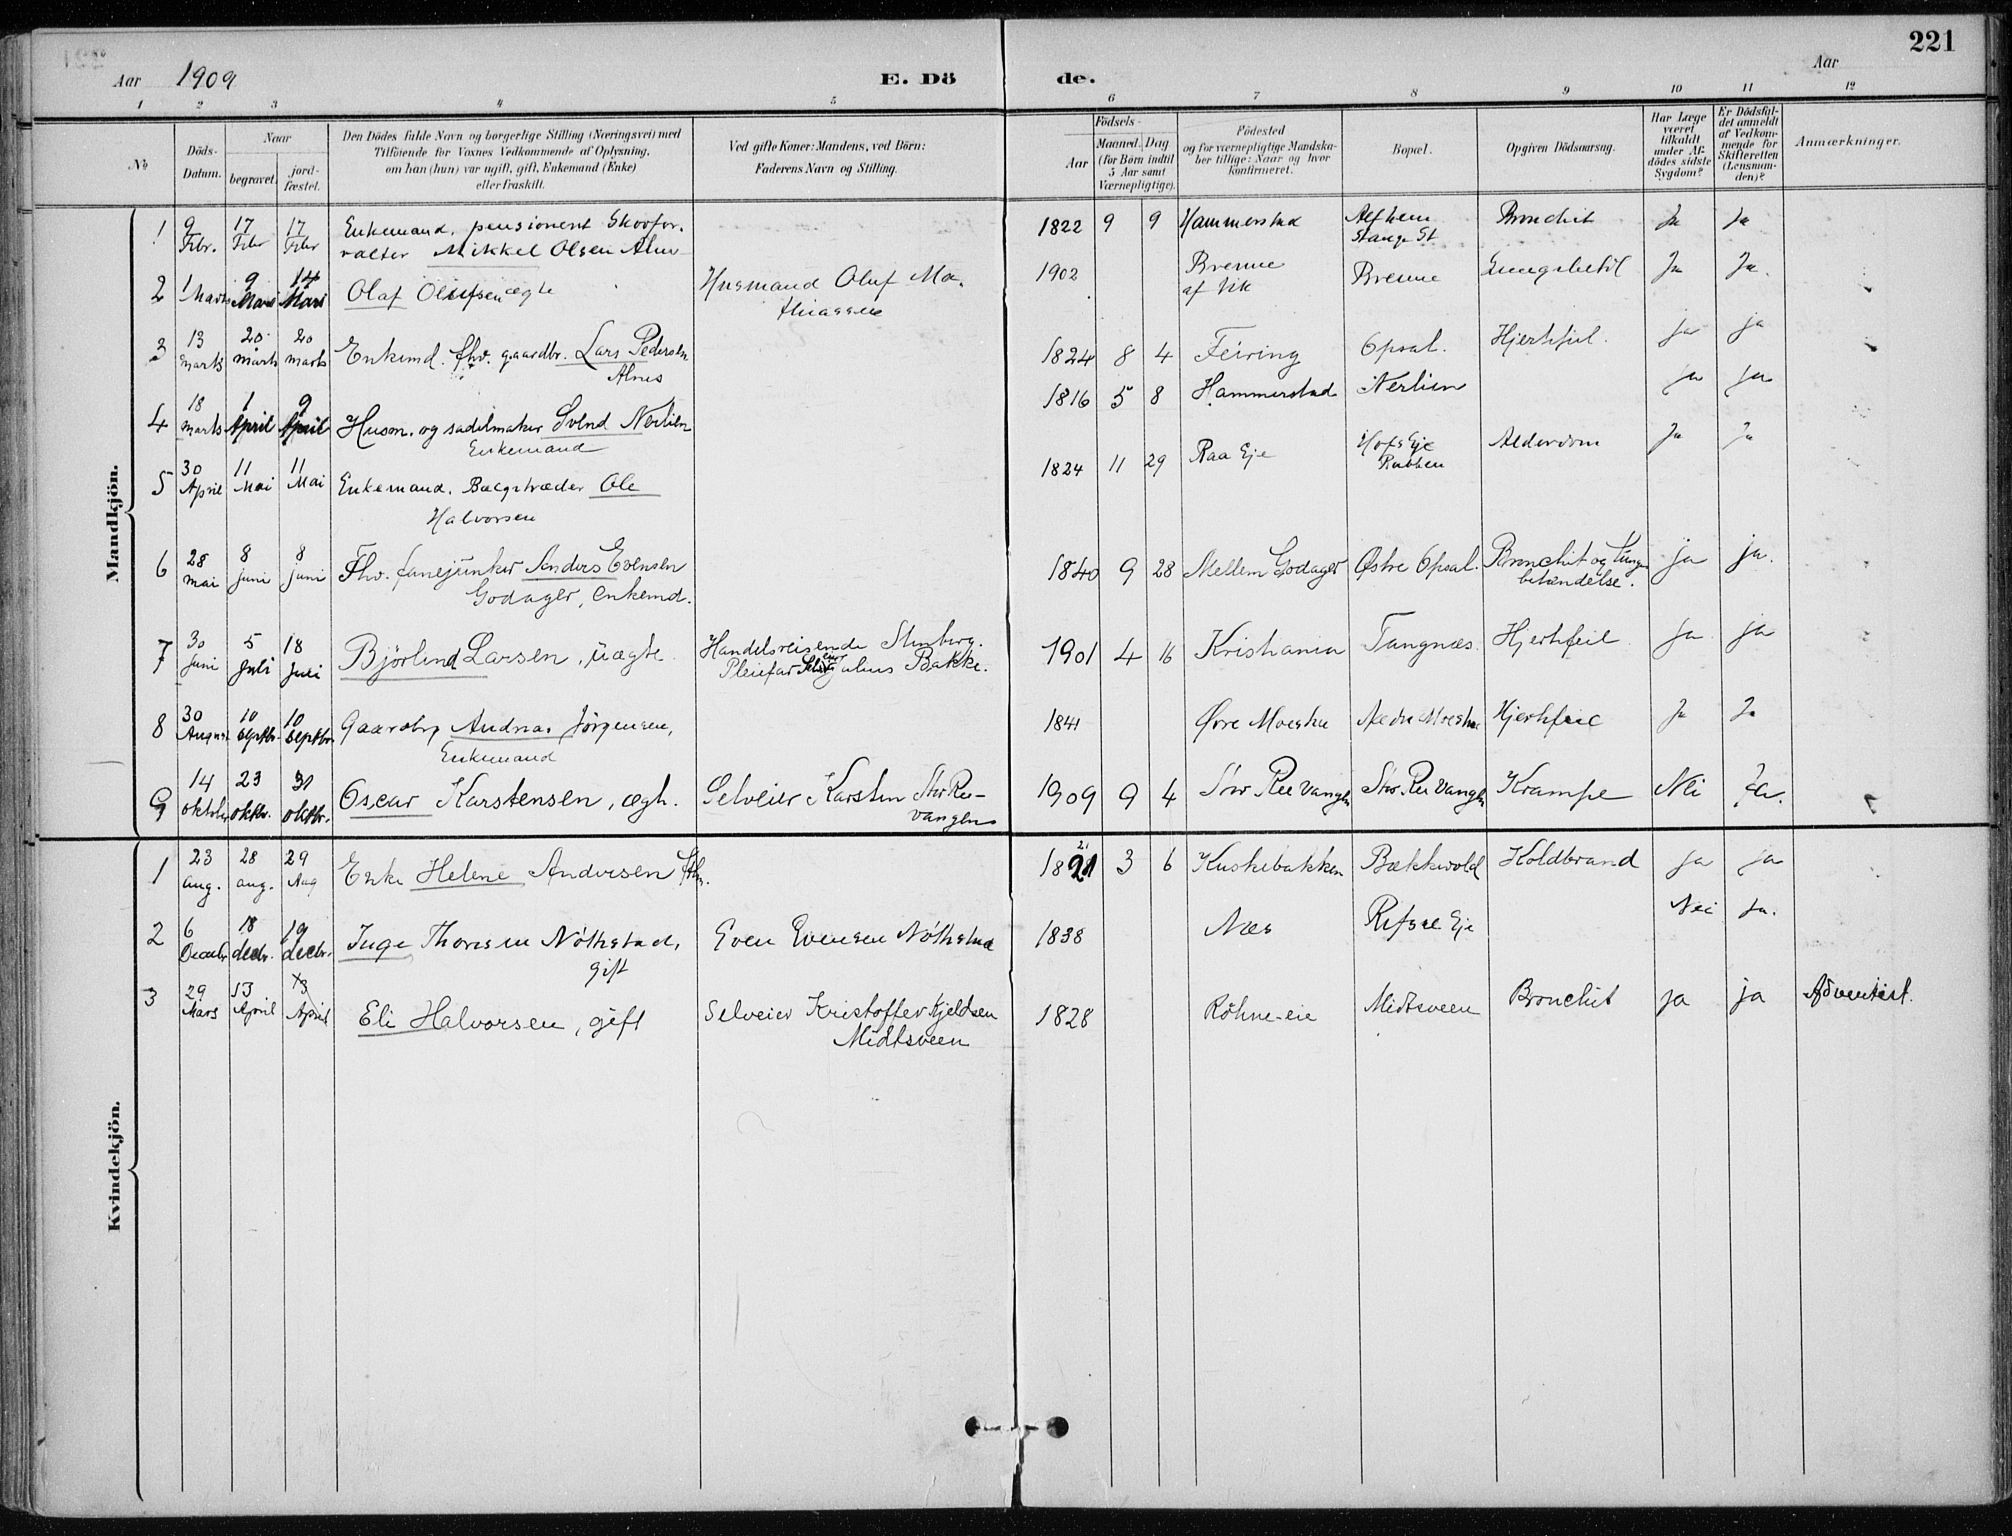 221
Aar 1909 E. Dö de. Aar
1 2 3 4 5 6 7 8 9 10 11 12
No
Döds-Datum.
Naar
begravet.
jord-fæstet.
Den Dödes fulde Navn og borgerlige Stilling (Næringsvei) med
Tilföiende for Voxnes Vedkommende af Oplysning,
om han (hun) var ugift, gift, Enkemand (Enke)
eller fraskilt.
Ved gifte Koner: Mandens, ved Börn:
Faderens Navn og Stilling.
Födsels-
Aar
Maaned. Dag
(for Börn indtil
5 Aar samt
Værnepligtige).
Födested
og for værnepligtige Mandska-
ber tillige: Naar og hvor
konfirmeret.
Bopæl.
Opgiven Dödsaarsag.
Har Læge
været
tilkaldt
under Af-
dödes sidste
Sygdom?
Er Dödsfal-
det anmeldt
af Vedkom-
mende for
Skifteretten
(Lensman-
den)?
Anmærkninger.
Mandkjön.
1 9 Febr. 17 Febr 17 Febr Enkemand, pensionert Skovfor-
valter Mikkel Olsen Alm 1822 9 9 Hammerstad Alfheim
Stange St Bronchit Ja Ja
2 1 Marts 9 Mars 14 Mars Olaf Olufsen ægte Husmand Oluf Ma-
thiassen 1902 Brenne
af Vik Brenne Lungebetd Ja Ja.
3 13 marts 20 marts 20 marts Enkemd. fhv. gaardbr. Lars Pedersen
Alnes 1824 8 4 Feiring Opsal. Hjertefeil. ja ja
4 18 marts 1 April 9 April Husm. og sadelmaker Svend Nerlien
Enkemand 1816 5 8 Hammerstad Nerlien ja ja
5 30 April 11 Mai 11 Mai Enkemand. Bælgetræder Ole
Halvorsen 1824 11 29 Raa Eje Hofs Eje
Rabben Alderdom Ja Ja
6 28 mai 8 juni 8 juni Fhv. fanejunker Anders Evensen
Godager, enkemd. 1840 9 28 Mellem Godager Østre Opsal. Bronchit og Lunge
betændelse. ja ja.
7 30 juni 5 juli 18 juli Björlend Larsen, uægte Handelsreisende Stenberg.
Pleiefar Julius Bakke. 1901 4 16 Kristiania Tangnæs. Hjertefeil ja ja
8 30 August 10 Septbr. 10 Septbr. Gaardbr. Andreas Jörgensen,
Enkemand 1841 Øvre Moestue Nedre Moestue Hjertefeil Ja Ja
9 14 oktober 23 oktbr. 31 oktbr. Oscar Karstensen, ægte. Selveier Karsten Stor Re-
vangen 1909 9 4 Stor Ree vangen Stor Ree vangen Krampe Nei Ja.
Kvindekjön.
1 23 aug. 28 aug. 29 Aug Enke Helene Andersen 1821 21 3 6 Kuskebakken Bækkevold Koldbrand ja ja
2 6 Decebr 18 decbr. 19 decbr. Inge Thoresen Nöthstad,
gift Even Evensen Nöthstad 1838 Næs Rifsæ Eje Nei Ja.
3 29 Mars 13 April 13 April Eli Halvorsen, gift Selveier Kristoffer Kjeldsen
Midtsveen 1828 Röhne-eie Midtsveen Bronchit ja ja Adventist.